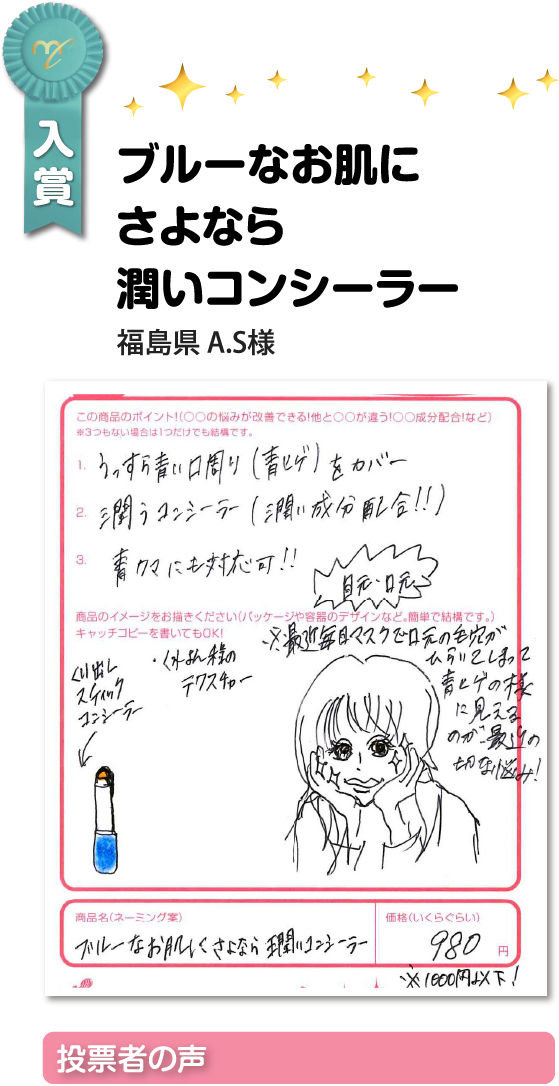 入賞
ブルーなお肌に
さよなら
潤いコンシーラー
福島県 A.S様
この商品のポイント!(○○の悩みが改善できる!他と○○が違う!○○成分配合!など)
※3つもない場合は1つだけでも結構です。
1. うっすら青い口周り(青ヒゲ)をカバー
2. 潤うコンシーラー(潤い成分配合!!)
3. 青クマにも対応可!!
目元、口元、
商品のイメージをお描きください(パッケージや容器のデザインなど。簡単で結構です。)
キャッチコピーを書いてもOK!
くり出し
スティック
コンシーラー
・くれよん様の
テクスチャー
※最近毎日マスクで口元の毛穴が
ひらいてしまって
青ヒゲの様
に見える
のが最近の
切な悩み!
商品名(ネーミング案)
ブルーなお肌にさよなら 潤いコンシーラー
価格(いくらぐらい)
980 円
※1000円以下!
投票者の声